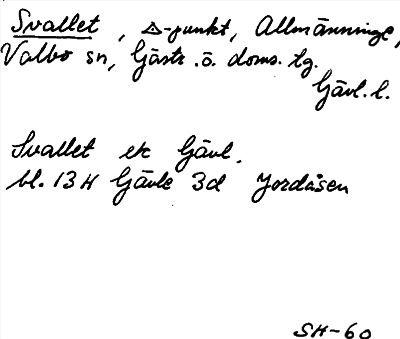 Svallet, △-punkt, Allmänninge,
Valbo sn, Gästr. ö. doms. tg.
Gävl. l.
Svallet ek Gävl.
bl. 13 H Gävle 3d Jordåsen
SH-60